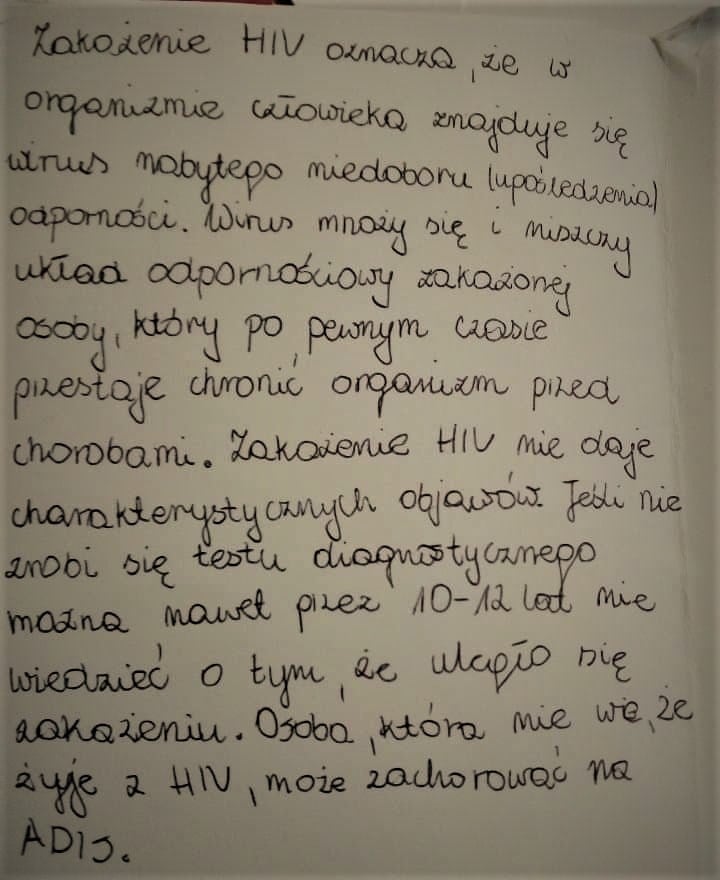 Zakażenie HIV oznacza, że w
organizmie człowieka znajduje się
wirus nabytego niedoboru (upośledzenia)
odporności. Wirus mnoży się i niszczy
układ odpornościowy zakażonej
osoby, który po pewnym czasie
przestaje chronić organizm przed
chorobami. Zakażenie HIV nie daje
charakterystycznych objawów. Jeśli nie
zrobi się testu diagnostycznego
można nawet przez 10-12 lat nie
wiedzieć o tym, że uległo się
zakażeniu. Osoba, która nie wie, że
żyje z HIV, może zachorować na
ADIS.